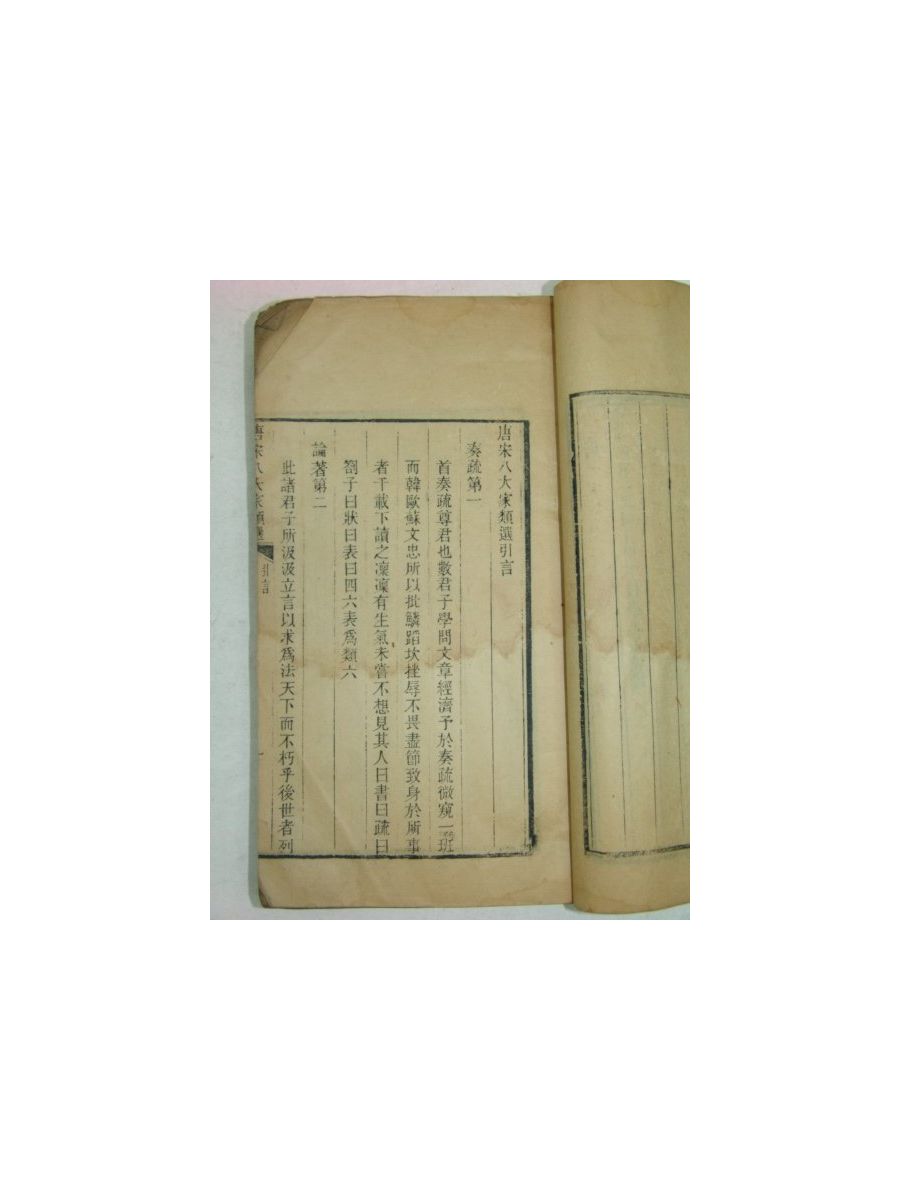 唐宋八大家類選引言
奏疏第一
首奏疏尊君也數君子學問文章經濟予於奏疏微窺一班
而韓歐蘇文忠所以批鱗蹈坎挫辱不畏盡節致身於所事
者千載下讀之凜凜有生氣未嘗不想見其人曰書曰疏曰
劄子曰狀曰表曰四六表爲類六
論著第二
此諸君子所汲汲立言以求爲法天下而不朽乎後世者列
唐宋八大家類選 引言 一